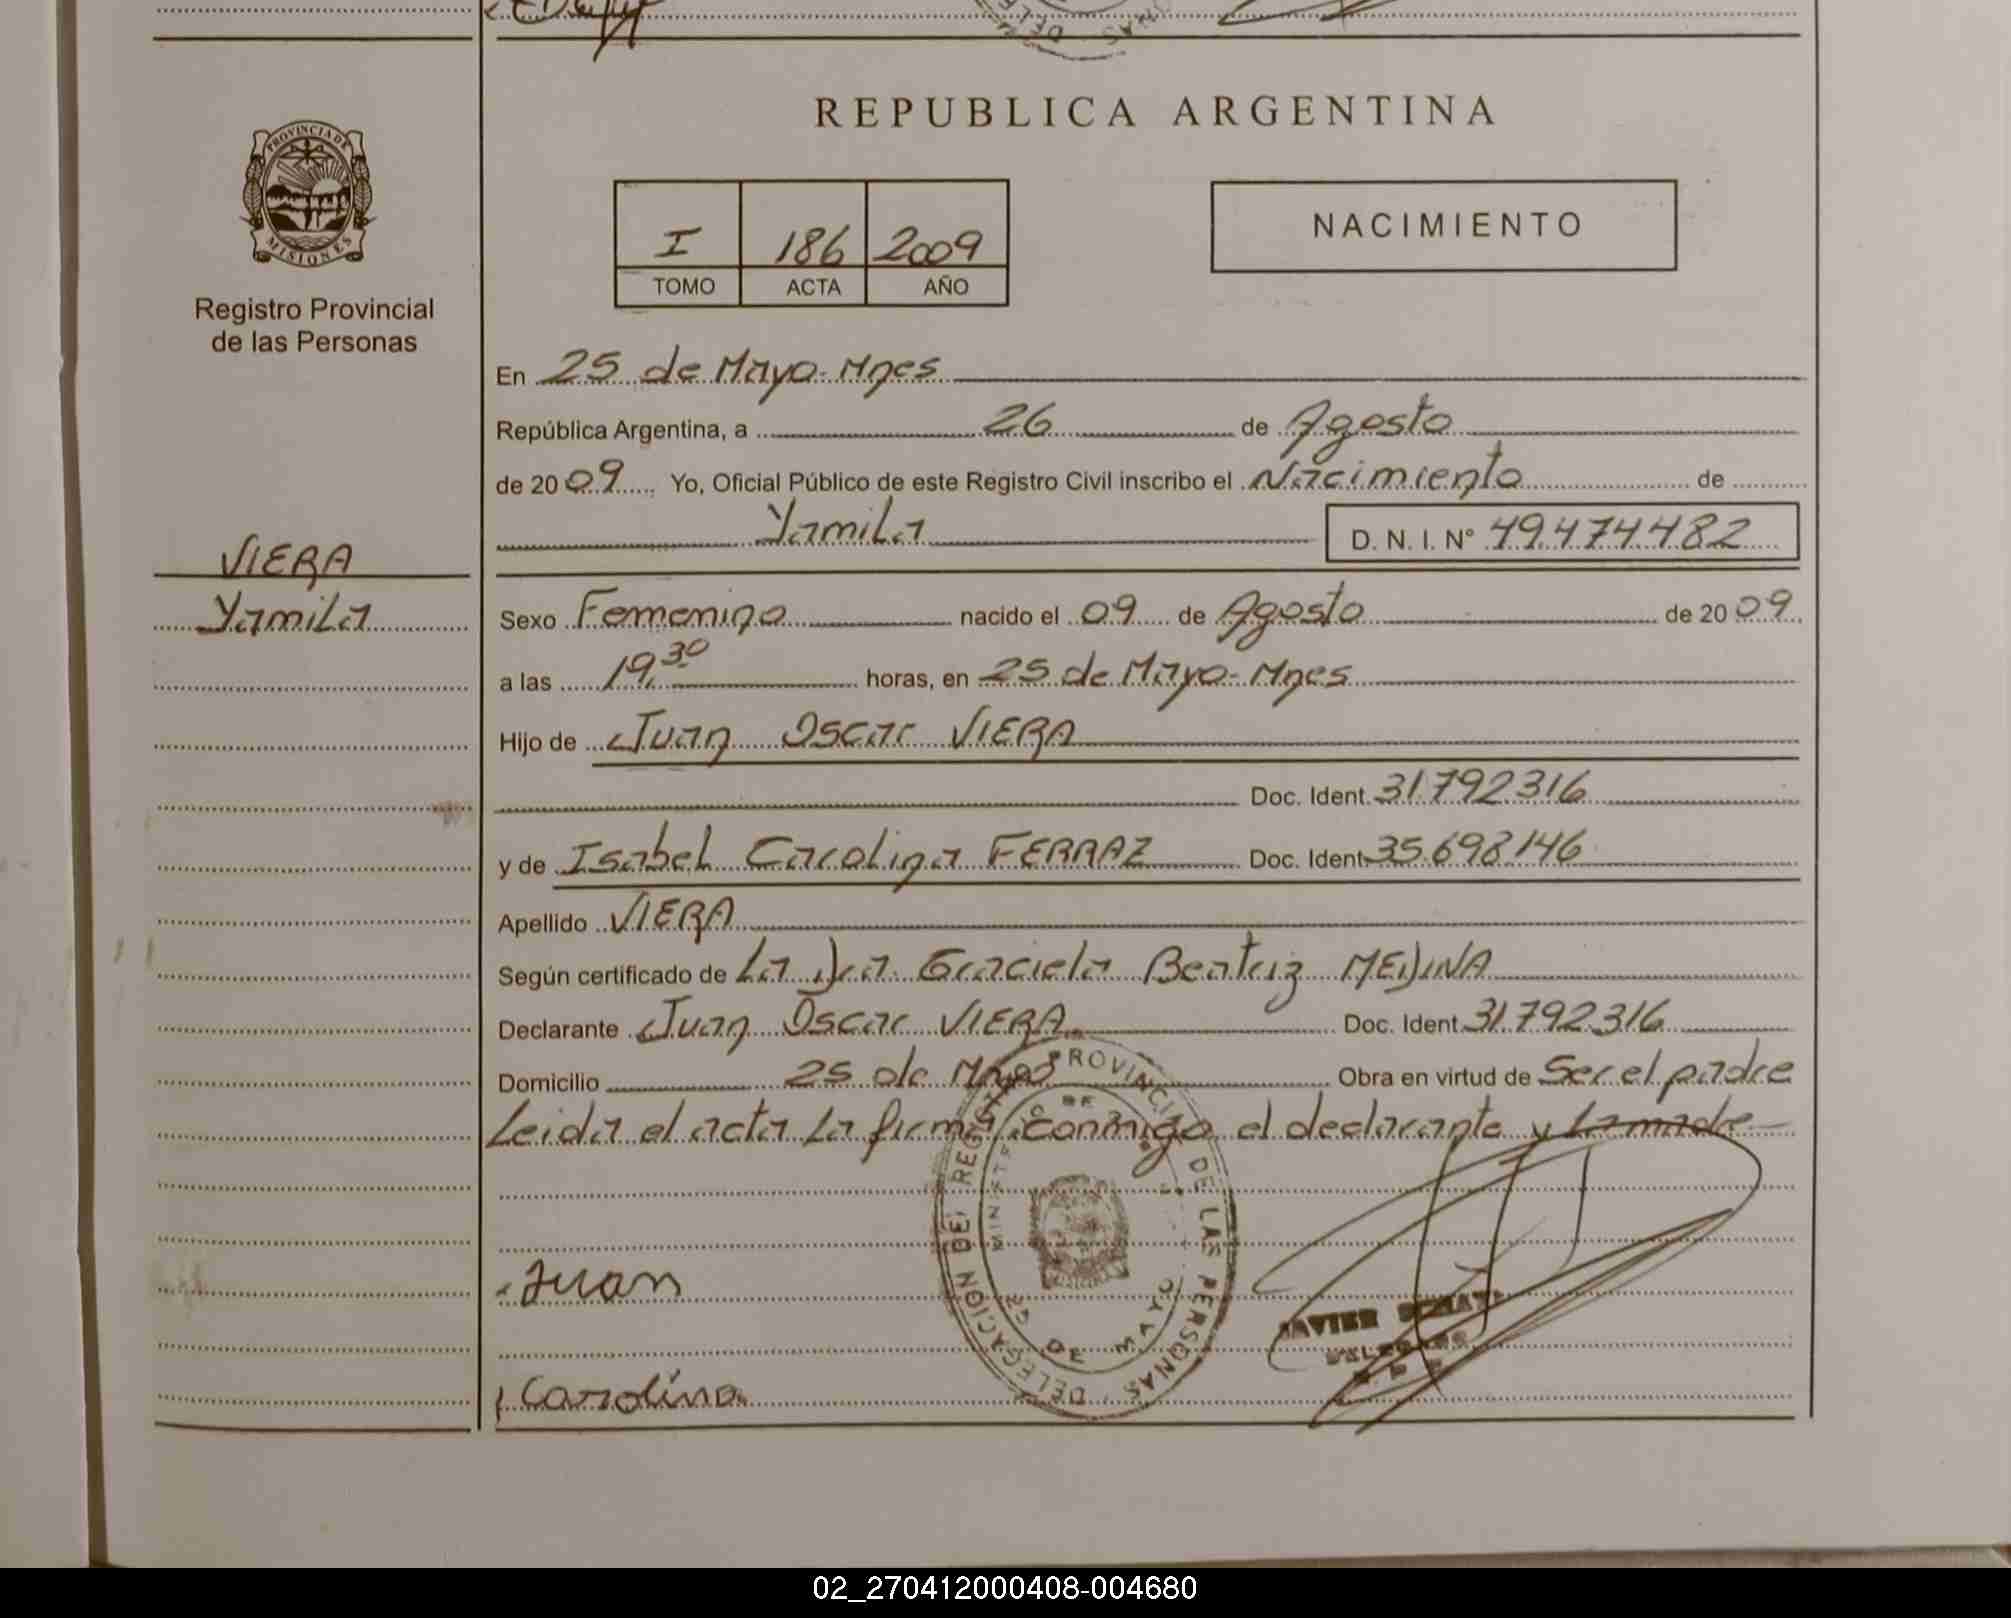 REPUBLICA ARGENTINA
PROVINCIA DE
MISIONES
Registro Provincial
de las Personas
I 186 2009
TOMO ACTA AÑO
NACIMIENTO
En 25 de Mayo - Mnes
República Argentina, a 26 de Agosto
de 2009 Yo, Oficial Público de este Registro Civil inscribo el Nacimiento de
Yamila D. N. I. N° 49.474.482
VIERA
Yamila
Sexo Femenino nacido el 09 de Agosto de 2009
a las 19.30 horas, en 25 de Mayo - Mnes
Hijo de Juan Oscar VIERA
Doc. Ident. 31.792.316
y de Isabel Carolina FERRAZ Doc. Ident. 35.698.146
Apellido VIERA
Según certificado de La Dra. Graciela Beatriz MEDINA
Declarante Juan Oscar VIERA Doc. Ident. 31.792.316
Domicilio 25 de Mayo Obra en virtud de Ser el padre
Leida el acta la firma conmigo el declarante y la madre
DELEGACION DEL REGISTRO PROVINCIAL DE LAS PERSONAS
25 DE MAYO
Juan
JAVIER
Carolina
02_270412000408-004680